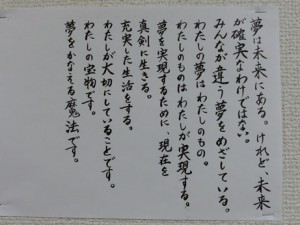 夢は未来にある。けれど、未来
が確実なわけではない。
みんなが違う夢をめざしている。
わたしの夢はわたしのもの。
わたしのものはわたしが実現する。
夢を実現するために、現在を
真剣に生きる。
充実した生活をする。
わたしが大切にしていることです。
わたしの宝物です。
夢をかなえる魔法です。